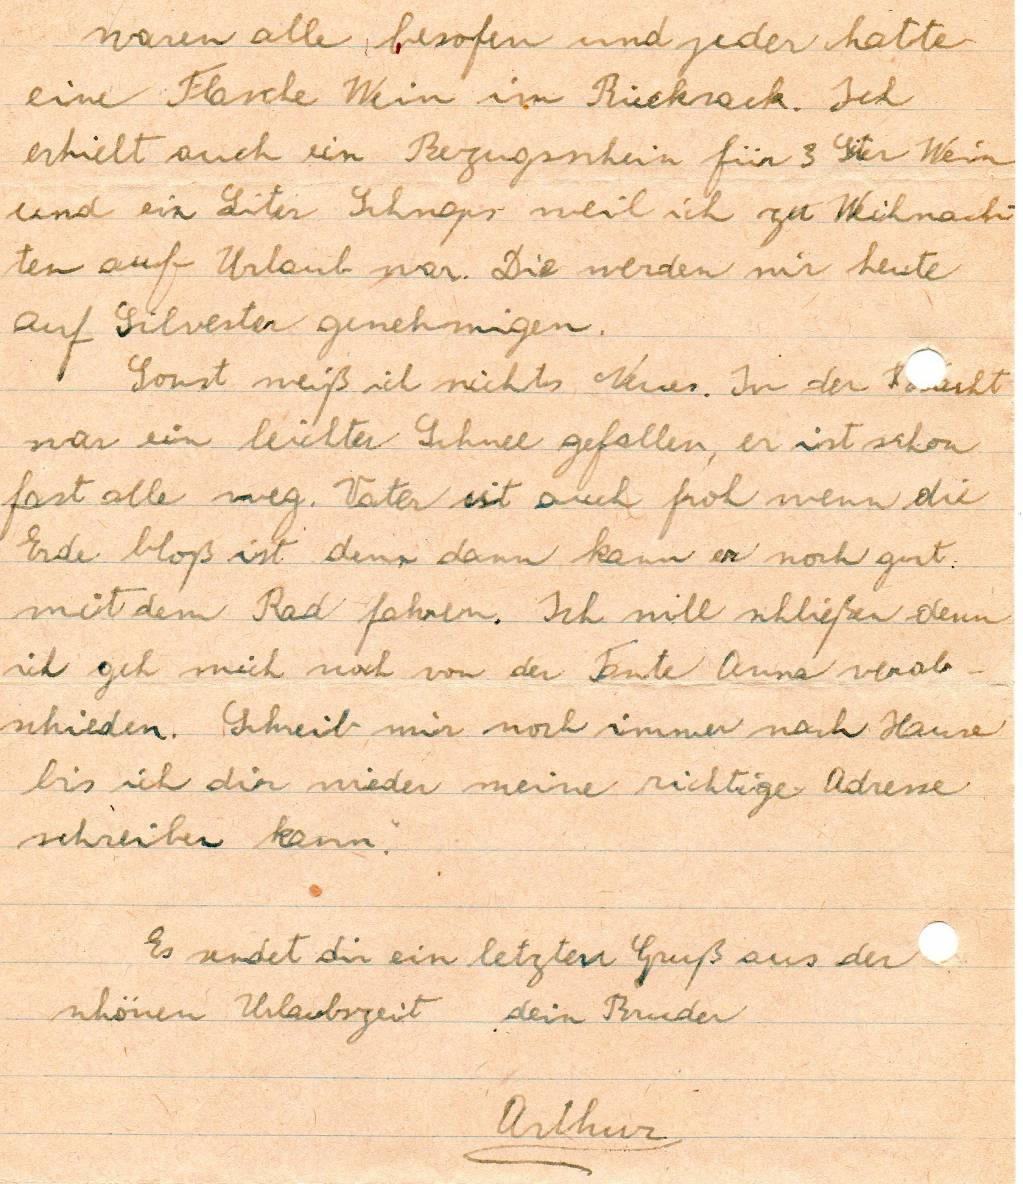 waren alle besofen und jeder hatte
eine Flasche Wein im Rucksack. Ich
erhielt auch ein Bezugsschein für 3 Liter Wein
und ein Liter Schnaps weil ich zu Weihnach
ten auf Urlaub war. Die werden wir heute
auf Silvester genehmigen.
Sonst weiß ich nichts Neues. In der Nacht
war ein leichter Schnee gefallen, er ist schon
fast alle weg. Vater ist auch froh wenn die
Erde bloß ist denn dann kann er noch gut
mit dem Rad fahren. Ich will schließen denn
ich geh mich noch von der Tante Anna verab-
schieden. Schreib mir noch immer nach Hause
bis ich dir wieder meine richtige Adresse
schreiben kann."
Es sendet dir ein letzten Gruß aus der
schönen Urlaubszeit dein Bruder
Arthur